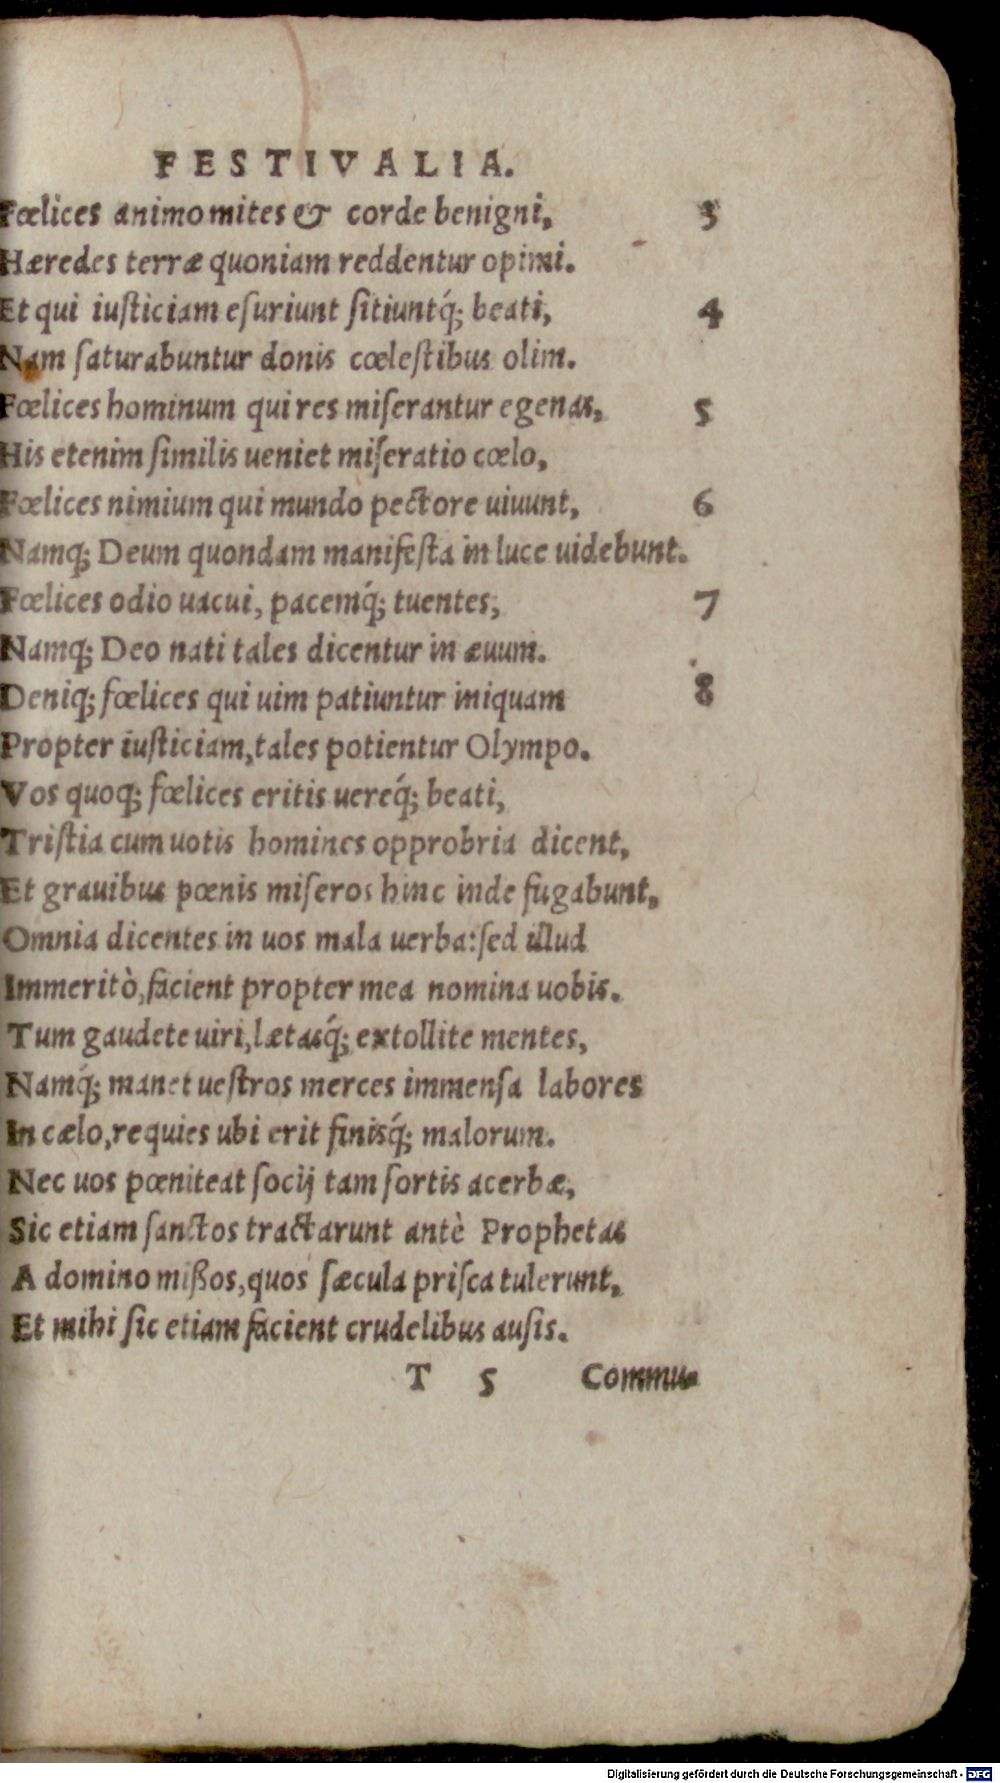 FESTIVALIA.
Fœlices animo mites & corde benigni, 3
Hæredes terræ quoniam reddentur opimi.
Et qui iusticiam esuriunt sitiuntq́; beati, 4
Nam saturabuntur donis cœlestibus olim.
Fœlices hominum qui res miserantur egenas, 5
His etenim similis ueniet miseratio cœlo,
Fœlices nimium qui mundo pectore uiuunt, 6
Namq; Deum quondam manifesta in luce uidebunt.
Fœlices odio uacui, pacemq́; tuentes, 7
Namq; Deo nati tales dicentur in æuum.
Deniq; fœlices qui uim patiuntur iniquam 8
Propter iusticiam, tales potientur Olympo.
Vos quoq; fœlices eritis uereq́; beati,
Tristia cum uotis homines opprobria dicent,
Et grauibus pœnis miseros hinc inde fugabunt,
Omnia dicentes in uos mala uerba: sed illud
Immeritò, facient propter mea nomina uobis.
Tum gaudete uiri, lætasq́; extollite mentes,
Namq́; manet uestros merces immensa labores
In cælo, requies ubi erit finisq́; malorum.
Nec uos pœniteat socij tam sortis acerbæ,
Sic etiam sanctos tractarunt antè Prophetas
A domino mißos, quos sæcula prisca tulerunt,
Et mihi sic etiam facient crudelibus ausis.
T 5 Commu-
Digitalisierung gefördert durch die Deutsche Forschungsgemeinschaft - DFG